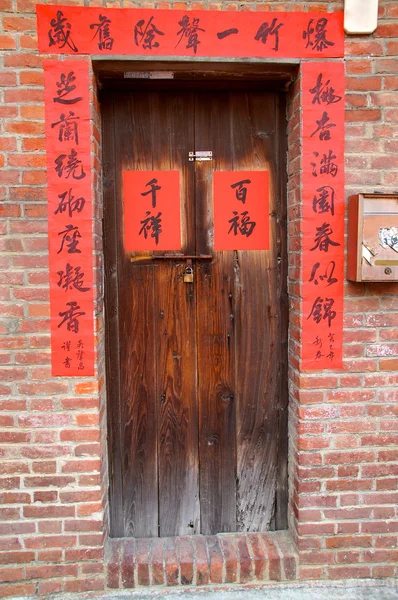 爆竹一聲除舊歲
桃杏滿園春似錦
新春
芝蘭繞砌座凝香
謹書
百福
千祥